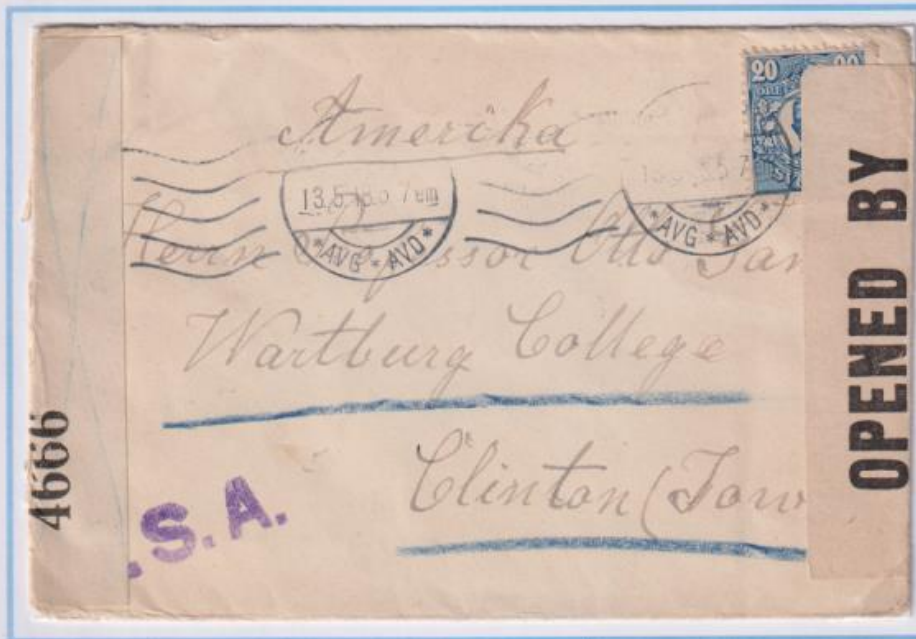 20
Amerika
13.5.18.5 7 em
*AVG * AVD*
*AVG * AVD*
Herrn Professor Otto
Wartburg College
Clinton (Iow
OPENED BY
4666
.S.A.